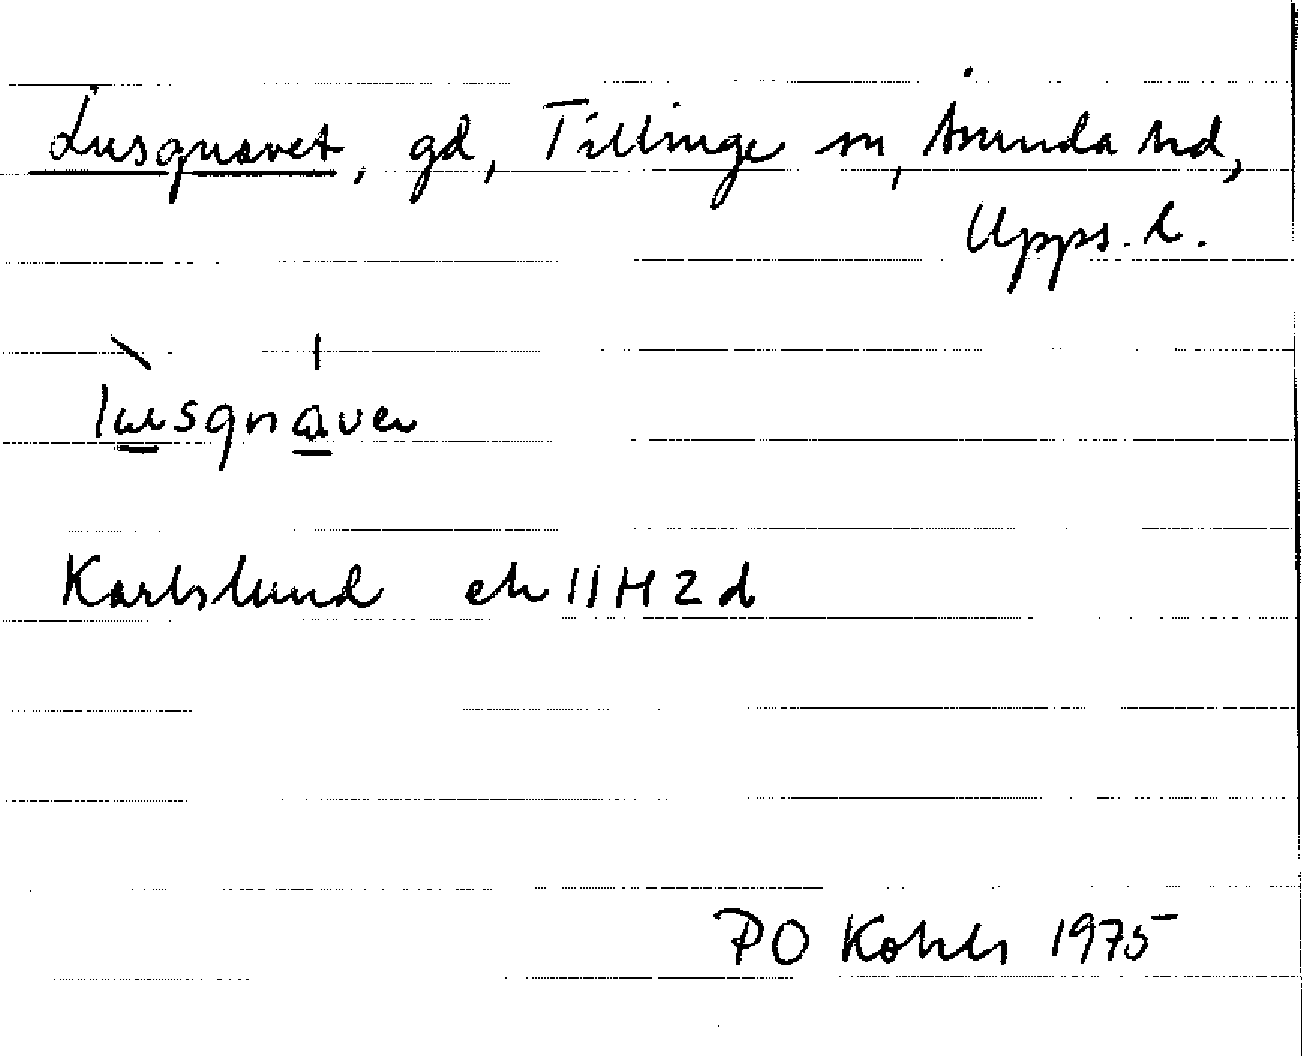 Lusgnavet, gd, Tillinge sn, Åsunda hd,
Upps. l.
lusgnaven
Karlslund ek 11H2d
PO Kohls 1975